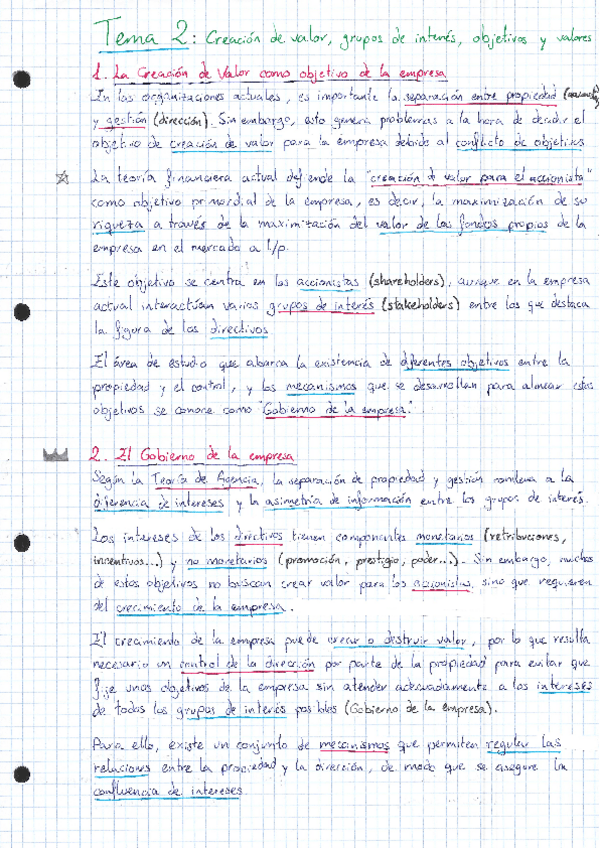 Tema 2: Creación de valor, grupos de interés, objetivos y valores
1. La Creación de Valor como objetivo de la empresa
En las organizaciones actuales, es importante la separación entre propiedad
y gestión (dirección). Sin embargo, esto genera problemas a la hora de decidir el
objetivo de creación de valor para la empresa debido al conflicto de objetivos
La teoría financiera actual defiende la "creación de valor para el accionista"
como objetivo primordial de la empresa, es decir, la maximización de su
riqueza a través de la maximización del valor de los fondos propios de la
empresa en el mercado a l/p.
Este objetivo se centra en los accionistas (shareholders), aunque en la empresa
actual interactúan varios grupos de interés (stakeholders) entre los que destaca
la figura de los directivos
El área de estudio que abarca la existencia de diferentes objetivos entre la
propiedad y el control, y los mecanismos que se desarrollan para alinear estos
objetivos se conoce como "Gobierno de la empresa."
2. El Gobierno de la empresa
Según la Teoría de Agencia, la separación de propiedad y gestión conlleva a la
diferencia de intereses y la asimetría de información entre los grupos de interés.
Los intereses de los directivos tienen componentes monetarios (retribuciones,
incentivos...) y no monetarios (promoción, prestigio, poder...). Sin embargo, muchos
de estos objetivos no buscan crear valor para los accionistas, sino que requieren
del crecimiento de la empresa.
El crecimiento de la empresa puede crear o destruir valor, por lo que resulta
necesario un control de la dirección por parte de la propiedad para evitar que
fije unos objetivos de la empresa sin atender adecuadamente a los intereses
de todos los grupos de interés posibles (Gobierno de la empresa).
Para ello, existe un conjunto de mecanismos que permiten regular las
relaciones entre la propiedad y la dirección, de modo que se asegure la
confluencia de intereses